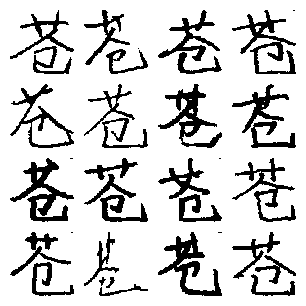 苍苍苍苍
苍苍苍苍
苍苍苍苍
苍苍苍苍